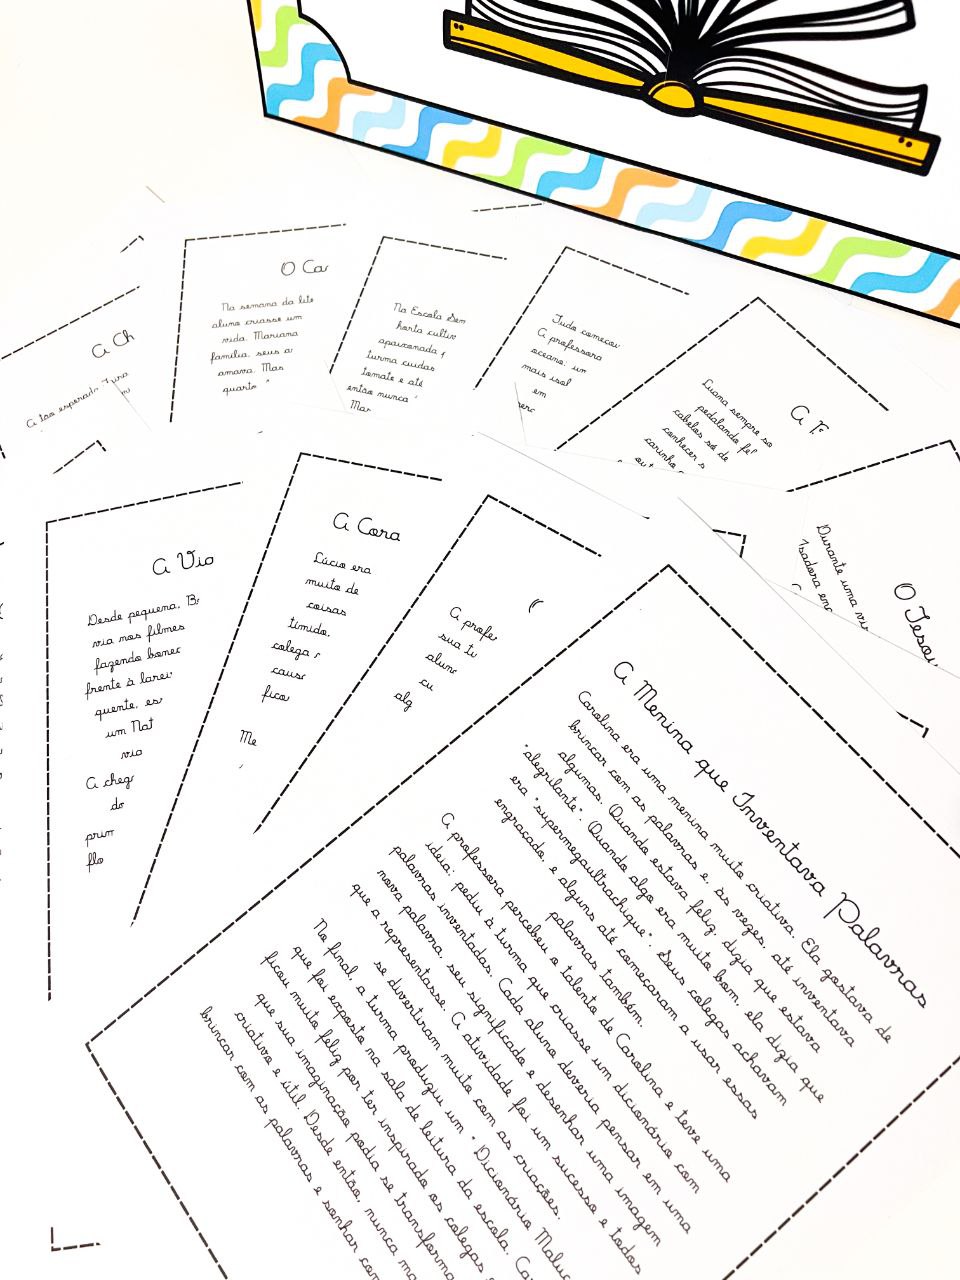 A Ch
A tão esperada
O Ca
Na semana da
aluno criasse um
vida. Mariana
família, seus
amava. Mas
quarto
Na Escola
horta
apaixonada
turma cuidas
tomate e até
então nunca
Tudo
A professora
oceano, um
mais
em
A
Luana sempre
pedalando
cabelos
conhecer
carinho
Durante uma
Isadora
O
A
Desde pequena,
via nos filmes
fazendo
frente à
quente,
um
via
A
do
A Cora
Lúcio era
muito de
coisas
tímido,
colega
fico
Me
A
sua
A Menina que Inventava Palavras
Carolina era uma menina muito criativa. Ela gostava de
brincar com as palavras e, às vezes, até inventava
algumas. Quando estava feliz, dizia que estava
"alegrilante". Quando algo era muito bom, ela dizia que
era "supermegaultrachique". Seus colegas achavam
engraçado, e alguns até começaram a usar essas
palavras também.
A professora percebeu o talento de Carolina e teve uma
ideia: pediu à turma que criasse um dicionário com
palavras inventadas. Cada aluno deveria pensar em uma
nova palavra, seu significado e desenhar uma imagem
que a representasse. A atividade foi um sucesso e todos
se divertiram muito com as criações.
No final, a turma produziu um "Dicionário
que foi exposto na sala de leitura da escola.
ficou muito feliz por ter inspirado os colegas e
que sua imaginação podia se
criativo e útil. Desde então, nunca
brincar com as palavras e sonhar com